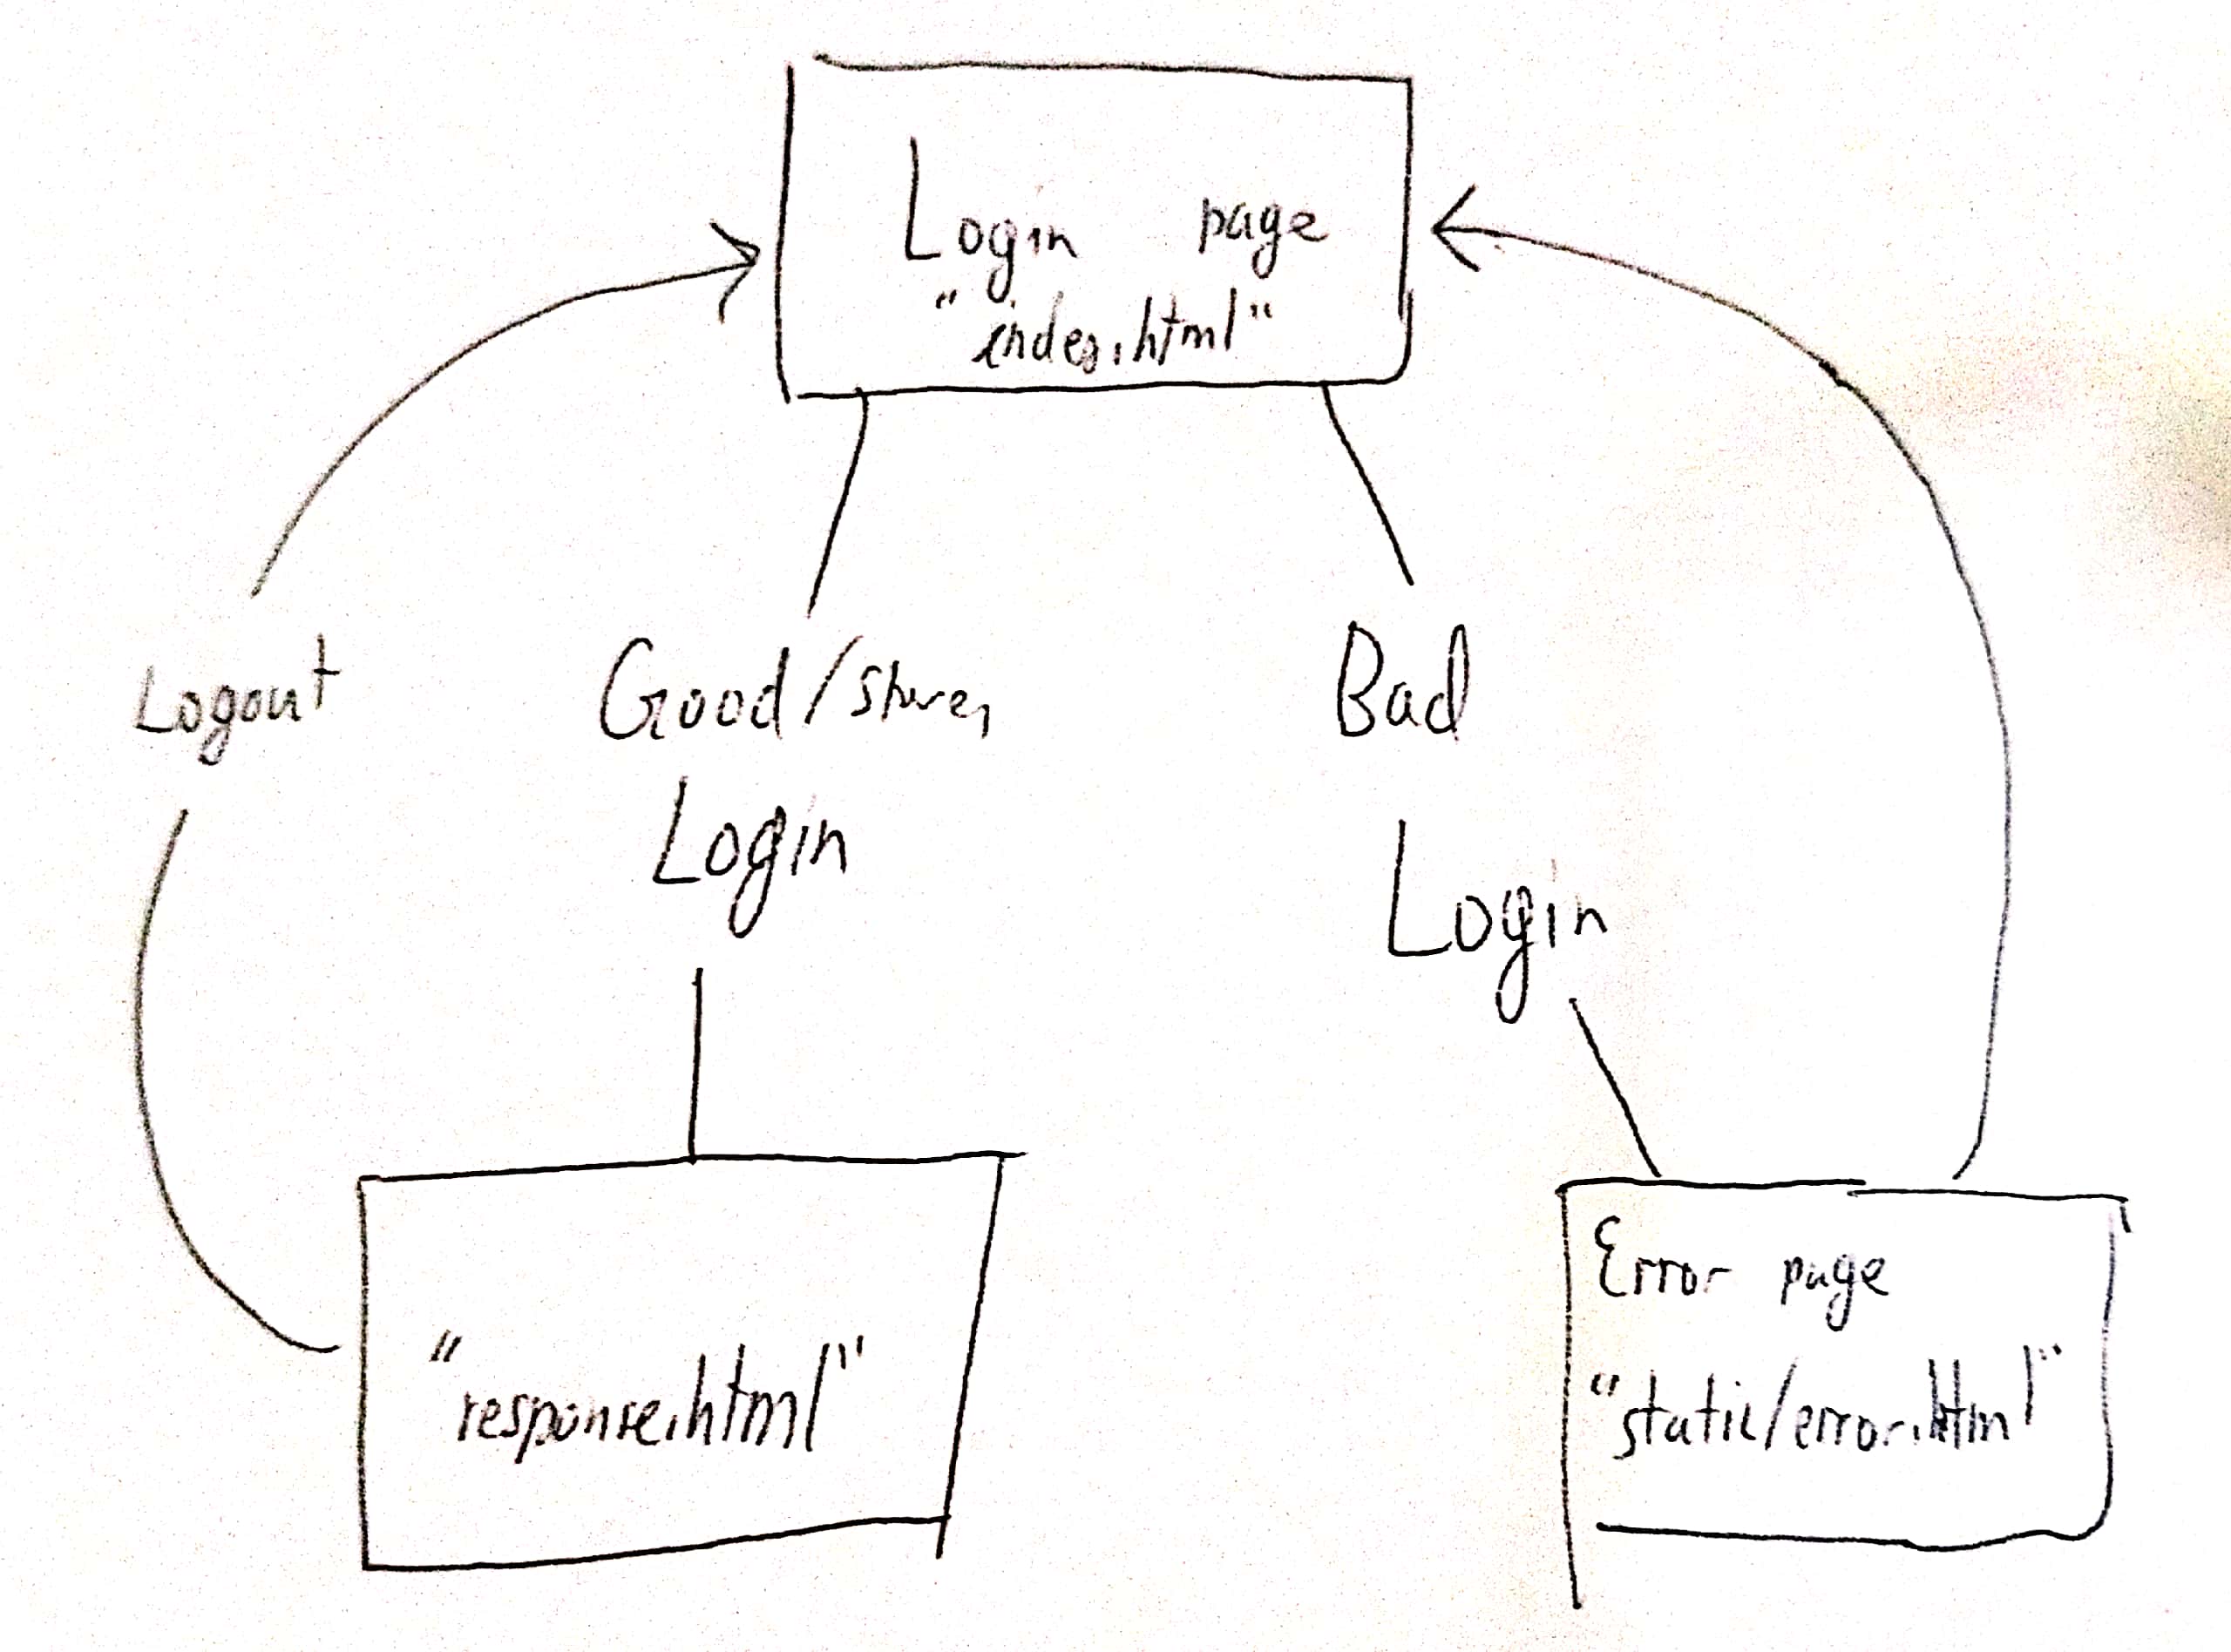 Login page
"index.html"
Logout
Good/
Bad
Login
Login
"response.html"
Error page
"static/error.html"